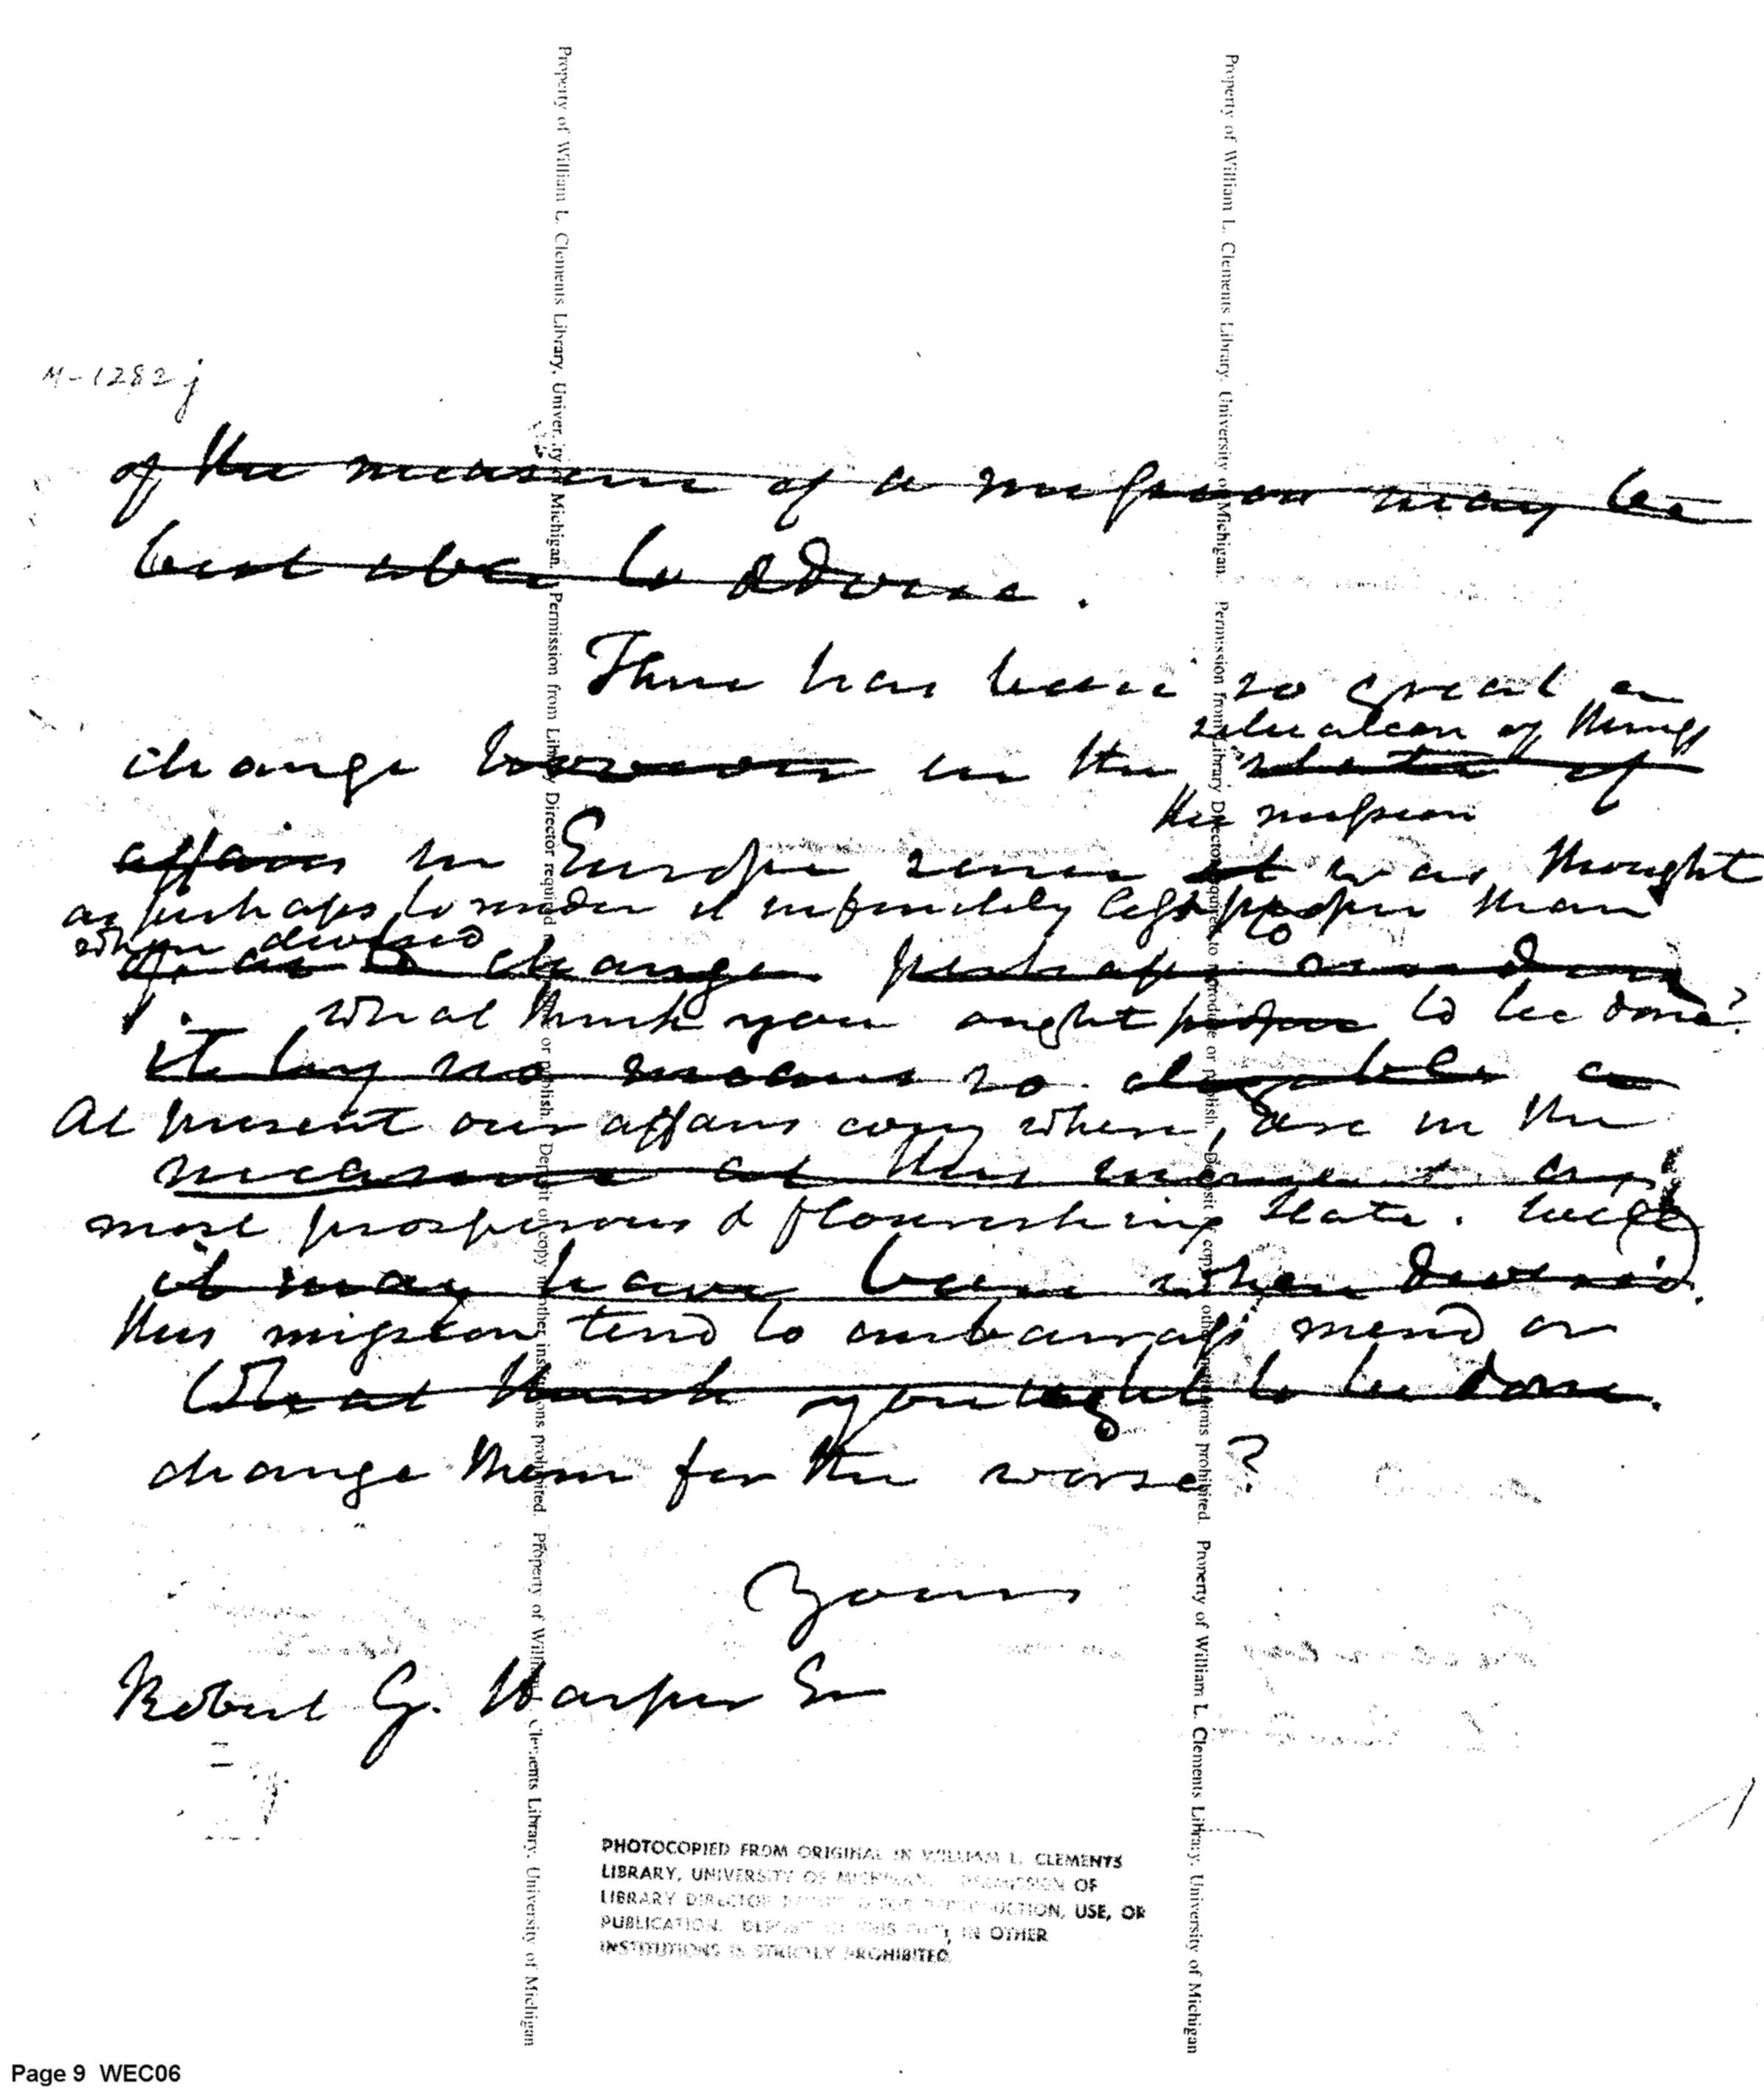 M-1282 j
of the measure of a mission may be
best able to advise.
There has been so great a
situation of things
change however in the state of
the mission
affairs in Europe since it was thought
as perhaps to render it infinitely less proper than
when devised
of. as to change perhaps to render
What think you ought proper to be done?
it by no means so eligible a
At present our affairs every where, are in the
measure at this moment as
most prosperous & flourishing state. Will
it may have been when devised.
this mission tend to embarrass mend or
What think you ought to be done.
change them for the worse?
Yours
Robert G. Harper Esr
PHOTOCOPIED FROM ORIGINAL IN WILLIAM L. CLEMENTS
LIBRARY, UNIVERSITY OF MICHIGAN. PERMISSION OF
LIBRARY DIRECTOR REQUIRED FOR REPRODUCTION, USE, OR
PUBLICATION. DEPOSIT OF THIS COPY IN OTHER
INSTITUTIONS IS STRICTLY PROHIBITED.
Property of William L. Clements Library, University of Michigan. Permission from Library Director required to reproduce or publish. Deposit of copy in other institutions prohibited. Property of William L. Clements Library, University of Michigan
Property of William L. Clements Library, University of Michigan. Permission from Library Director required to reproduce or publish. Deposit of copy in other institutions prohibited. Property of William L. Clements Library, University of Michigan
Page 9 WEC06